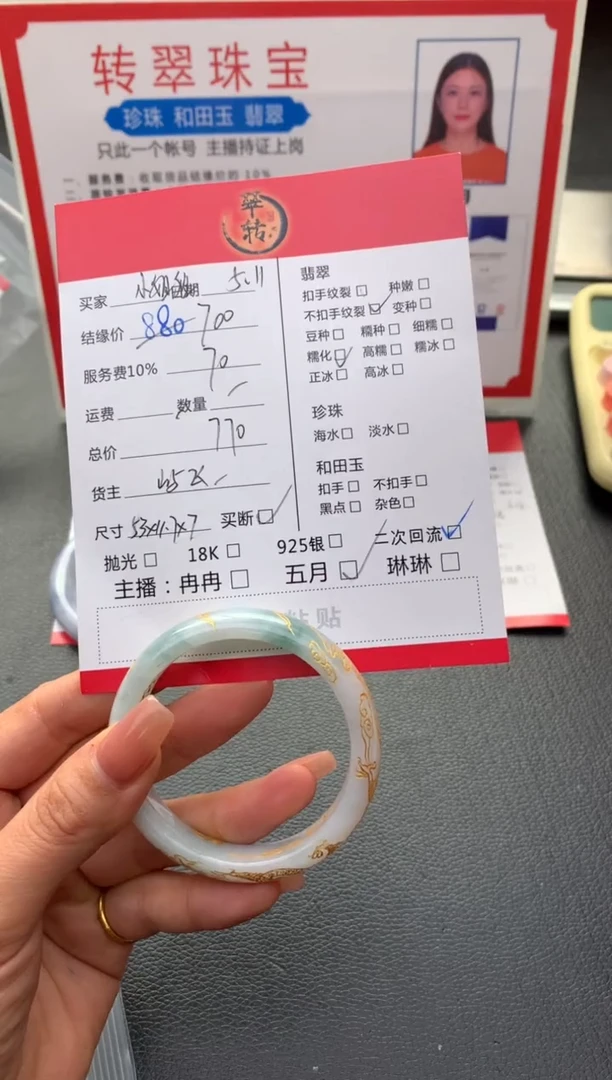 转翠珠宝
珍珠 和田玉 翡翠
只此一个帐号 主播持证上岗
一、服务费：收取货品结缘价的 10%
翠转
买家 5.11
结缘价 880 700
服务费10% 70
运费 数量
总价 770
货主
尺寸 53x11.7x7 买断☑
抛光□ 18K□ 925银□ 二次回流☑
主播：冉冉□ 五月☑ 琳琳□
粘贴
翡翠
扣手纹裂□ 种嫩□
不扣手纹裂☑ 变种□
豆种□ 糯种□ 细糯□
糯化☑ 高糯□ 糯冰□
正冰□ 高冰□
珍珠
海水□ 淡水□
和田玉
扣手□ 不扣手□
黑点□ 杂色□